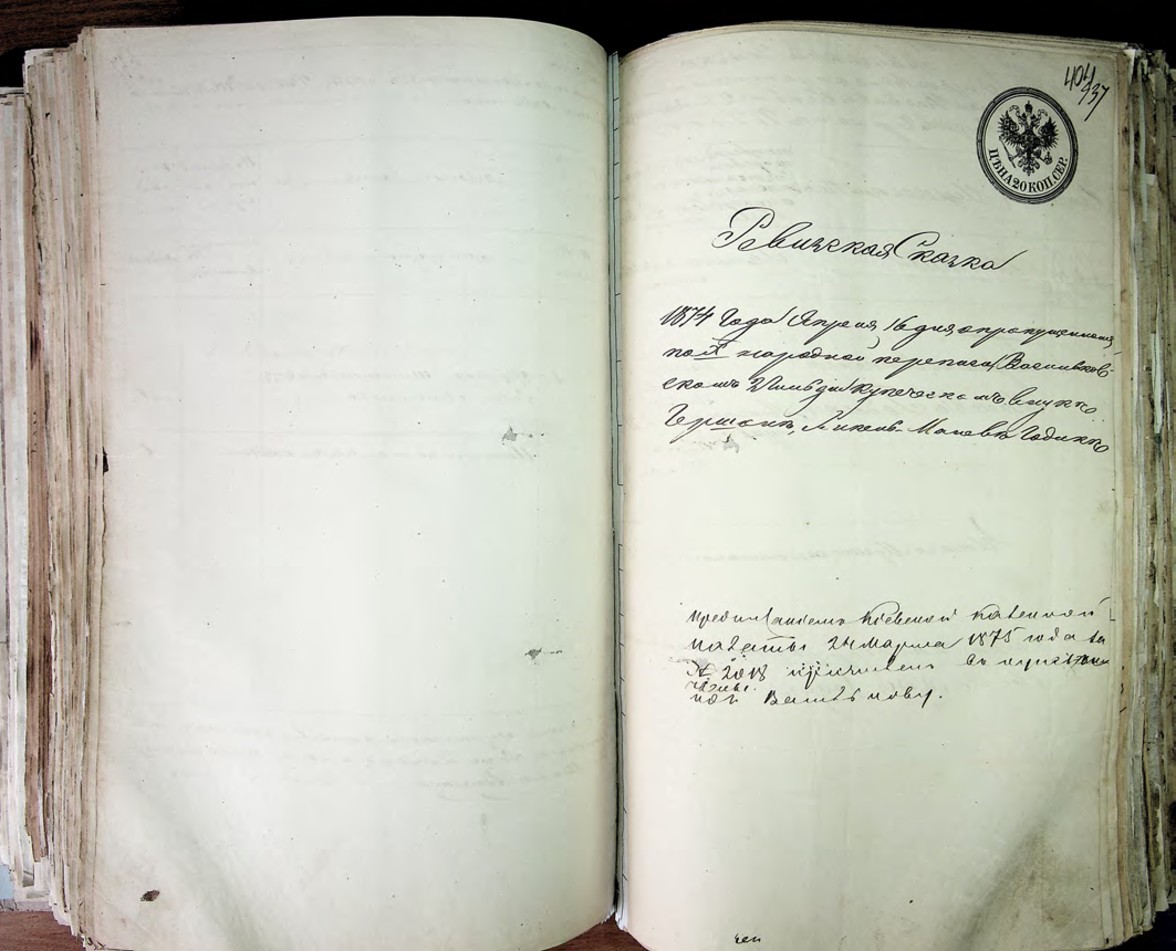 404
937
ЦѢНА 20 КОП. СЕР.
Ревизская Сказка
1874 Года Апреля 16 дня о пропущенномъ
по X народной переписи Васильков-
скомъ 2 Гильдіи купеческомъ внуке
Гершонъ, Мошевъ Годикъ
Предписаніемъ Кіевской Казенной
Палаты 24 Марта 1875 года за
№ 2018 причисленъ въ
по г. Василькову.